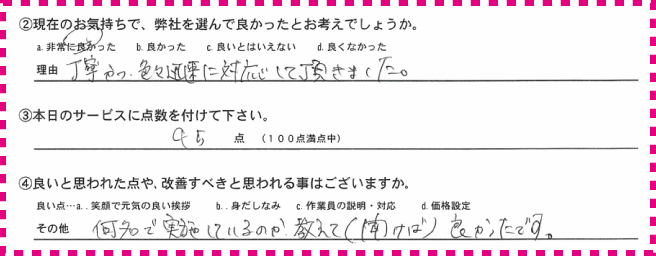 ②現在のお気持ちで、弊社を選んで良かったとお考えでしょうか。
a. 非常に良かった b. 良かった c. 良いとはいえない d. 良くなかった
理由 丁寧かつ、色々迅速に対応して頂きました。
③本日のサービスに点数を付けて下さい。
95 点 (100点満点中)
④良いと思われた点や、改善すべきと思われる事はございますか。
良い点…a.. 笑顔で元気の良い挨拶 b.. 身だしなみ c. 作業員の説明・対応 d. 価格設定
その他 何名で実施しているのか、教えて(頂けば)良かったです。